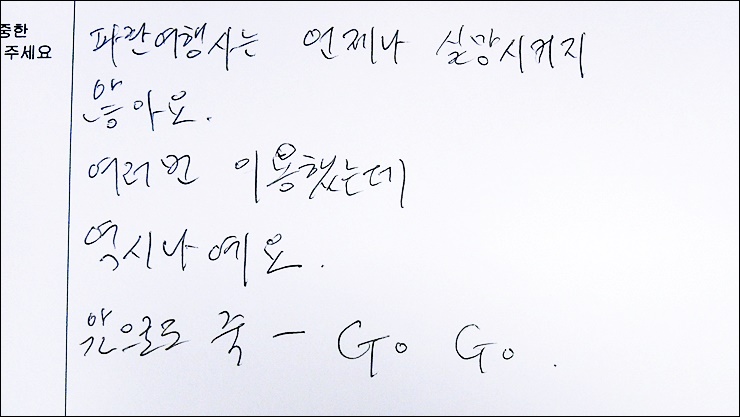 중한
주세요
파란여행사는 언제나 실망시키지
않아요.
여러번 이용했는데
역시나 예요.
앞으로도 쭉 - Go Go.